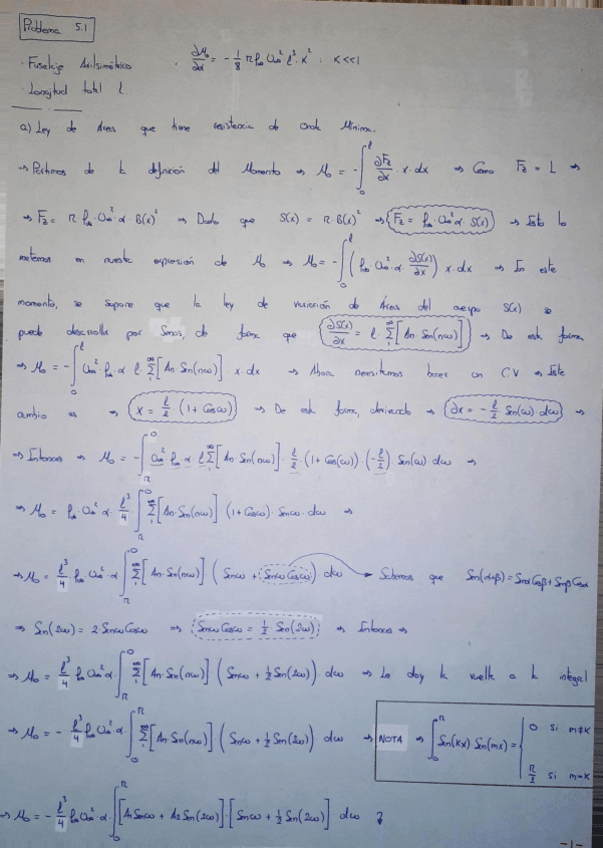 Problema 5.1
· Fuselaje Axilsimétrico · ∂M₀/∂α = -1/8 π ρ∞ U∞² l³ · K² ; K<<1
· Longitud total l.
a) Ley de Áreas que tiene resistencia de onda Mínima.
→ Partimos de la definición del Momento ⇒ M₀ = -∫₀ˡ ∂Fz/∂x · x · dx ⇒ Como Fz = L ⇒
⇒ Fz = π ρ∞ · U∞² · α · B(x)² ⇒ Dado que S(x) = π · B(x)² ⇒ Fz = ρ∞ · U∞² α · S(x) ⇒ Esto lo
metemos en nuestra expresión de M₀ ⇒ M₀ = -∫₀ˡ (ρ∞ U∞² · α · ∂S(x)/∂x) x · dx ⇒ En este
momento, se supone que la ley de variación de Áreas del cuerpo S(x) se
puede desarrollar por Senos, de forma que ∂S(x)/∂x = l · Σ₁^∞ [An · Sen(nω)] ⇒ De esta forma
⇒ M₀ = -∫₀ˡ U∞² · ρ∞ · α l Σ₁^∞ [An · Sen(nω)] · x · dx ⇒ Ahora necesitamos hacer un CV ⇒ Este
cambio es ⇒ x = l/2 · (1 + Cosω) ⇒ De esta forma, derivando ⇒ ∂x = -l/2 Sen(ω) · dω ⇒
⇒ Entonces ⇒ M₀ = -∫_π^0 U∞² ρ∞ α l Σ₁^∞ [An · Sen(nω)] · l/2 · (1 + Cos(ω)) · (-l/2) Sen(ω) · dω ⇒
⇒ M₀ = ρ∞ · U∞² α · l³/4 ∫_π^0 Σ₁^∞ [An · Sen(nω)] · (1 + Cosω) · Senω · dω ⇒
⇒ M₀ = l³/4 ρ∞ U∞² · α ∫_π^0 Σ₁^∞ [An · Sen(nω)] (Senω + Senω Cosω) dω → Sabemos que Sen(α+β) = Senα Cosβ + Senβ Cosα
⇒ Sen(2ω) = 2 Senω Cosω ⇒ Senω Cosω = 1/2 Sen(2ω) ⇒ Entonces ⇒
⇒ M₀ = l³/4 ρ∞ U∞² α · ∫_π^0 Σ₁^∞ [An · Sen(nω)] (Senω + 1/2 Sen(2ω)) dω ⇒ Le doy la vuelta a la integral
⇒ M₀ = - l³/4 ρ∞ U∞² α ∫_0^π Σ₁^∞ [An Sen(nω)] (Senω + 1/2 Sen(2ω)) dω ⇒ NOTA ⇒ ∫_0^π Sen(Kx) · Sen(mx) = { 0 si m≠K
π/2 si m=K
⇒ M₀ = - l³/4 ρ∞ U∞² α · ∫_0^π [A₁ Senω + A₂ Sen(2ω)] · [Senω + 1/2 Sen(2ω)] dω
-1-